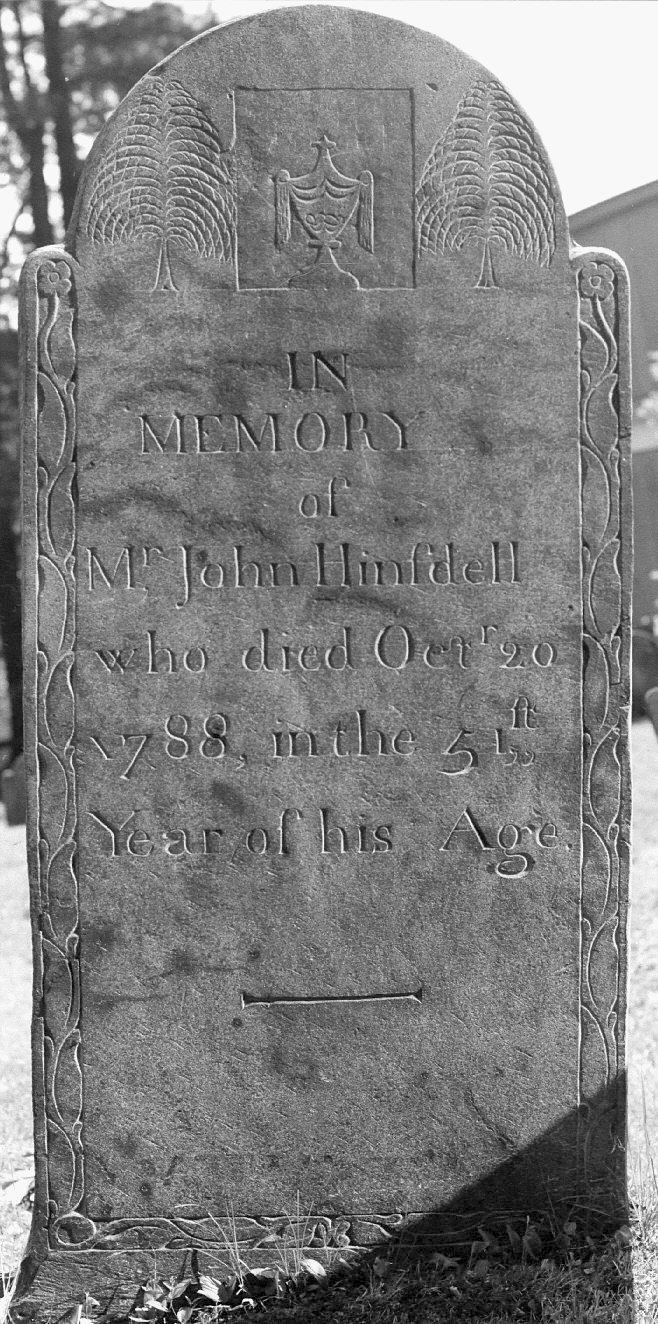 IN
MEMORY
of
Mr John Hinſdell
who died Octr 20
1788, in the 51ſt
Year of his Age.